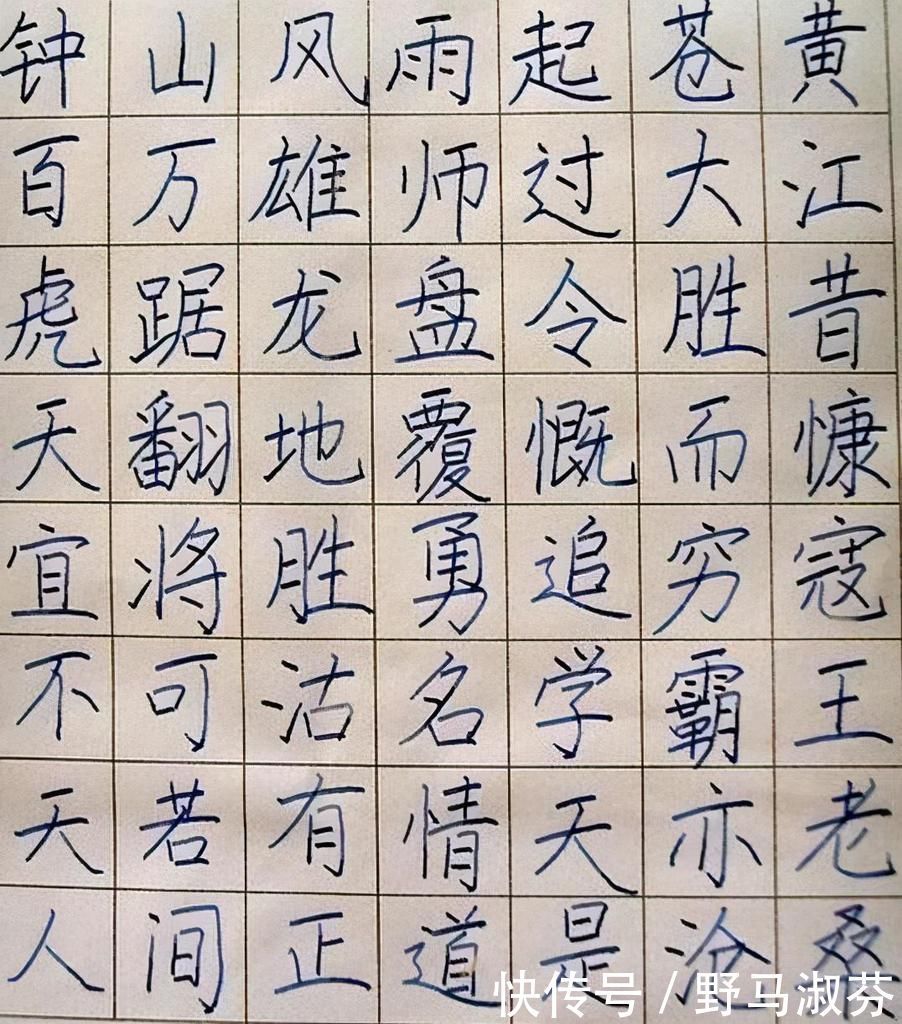 钟山风雨起苍黄
百万雄师过大江
虎踞龙盘令胜昔
天翻地覆慨而慷
宜将胜勇追穷寇
不可沽名学霸王
天若有情天亦老
人间正道是沧桑
快传号 / 野马淑芬